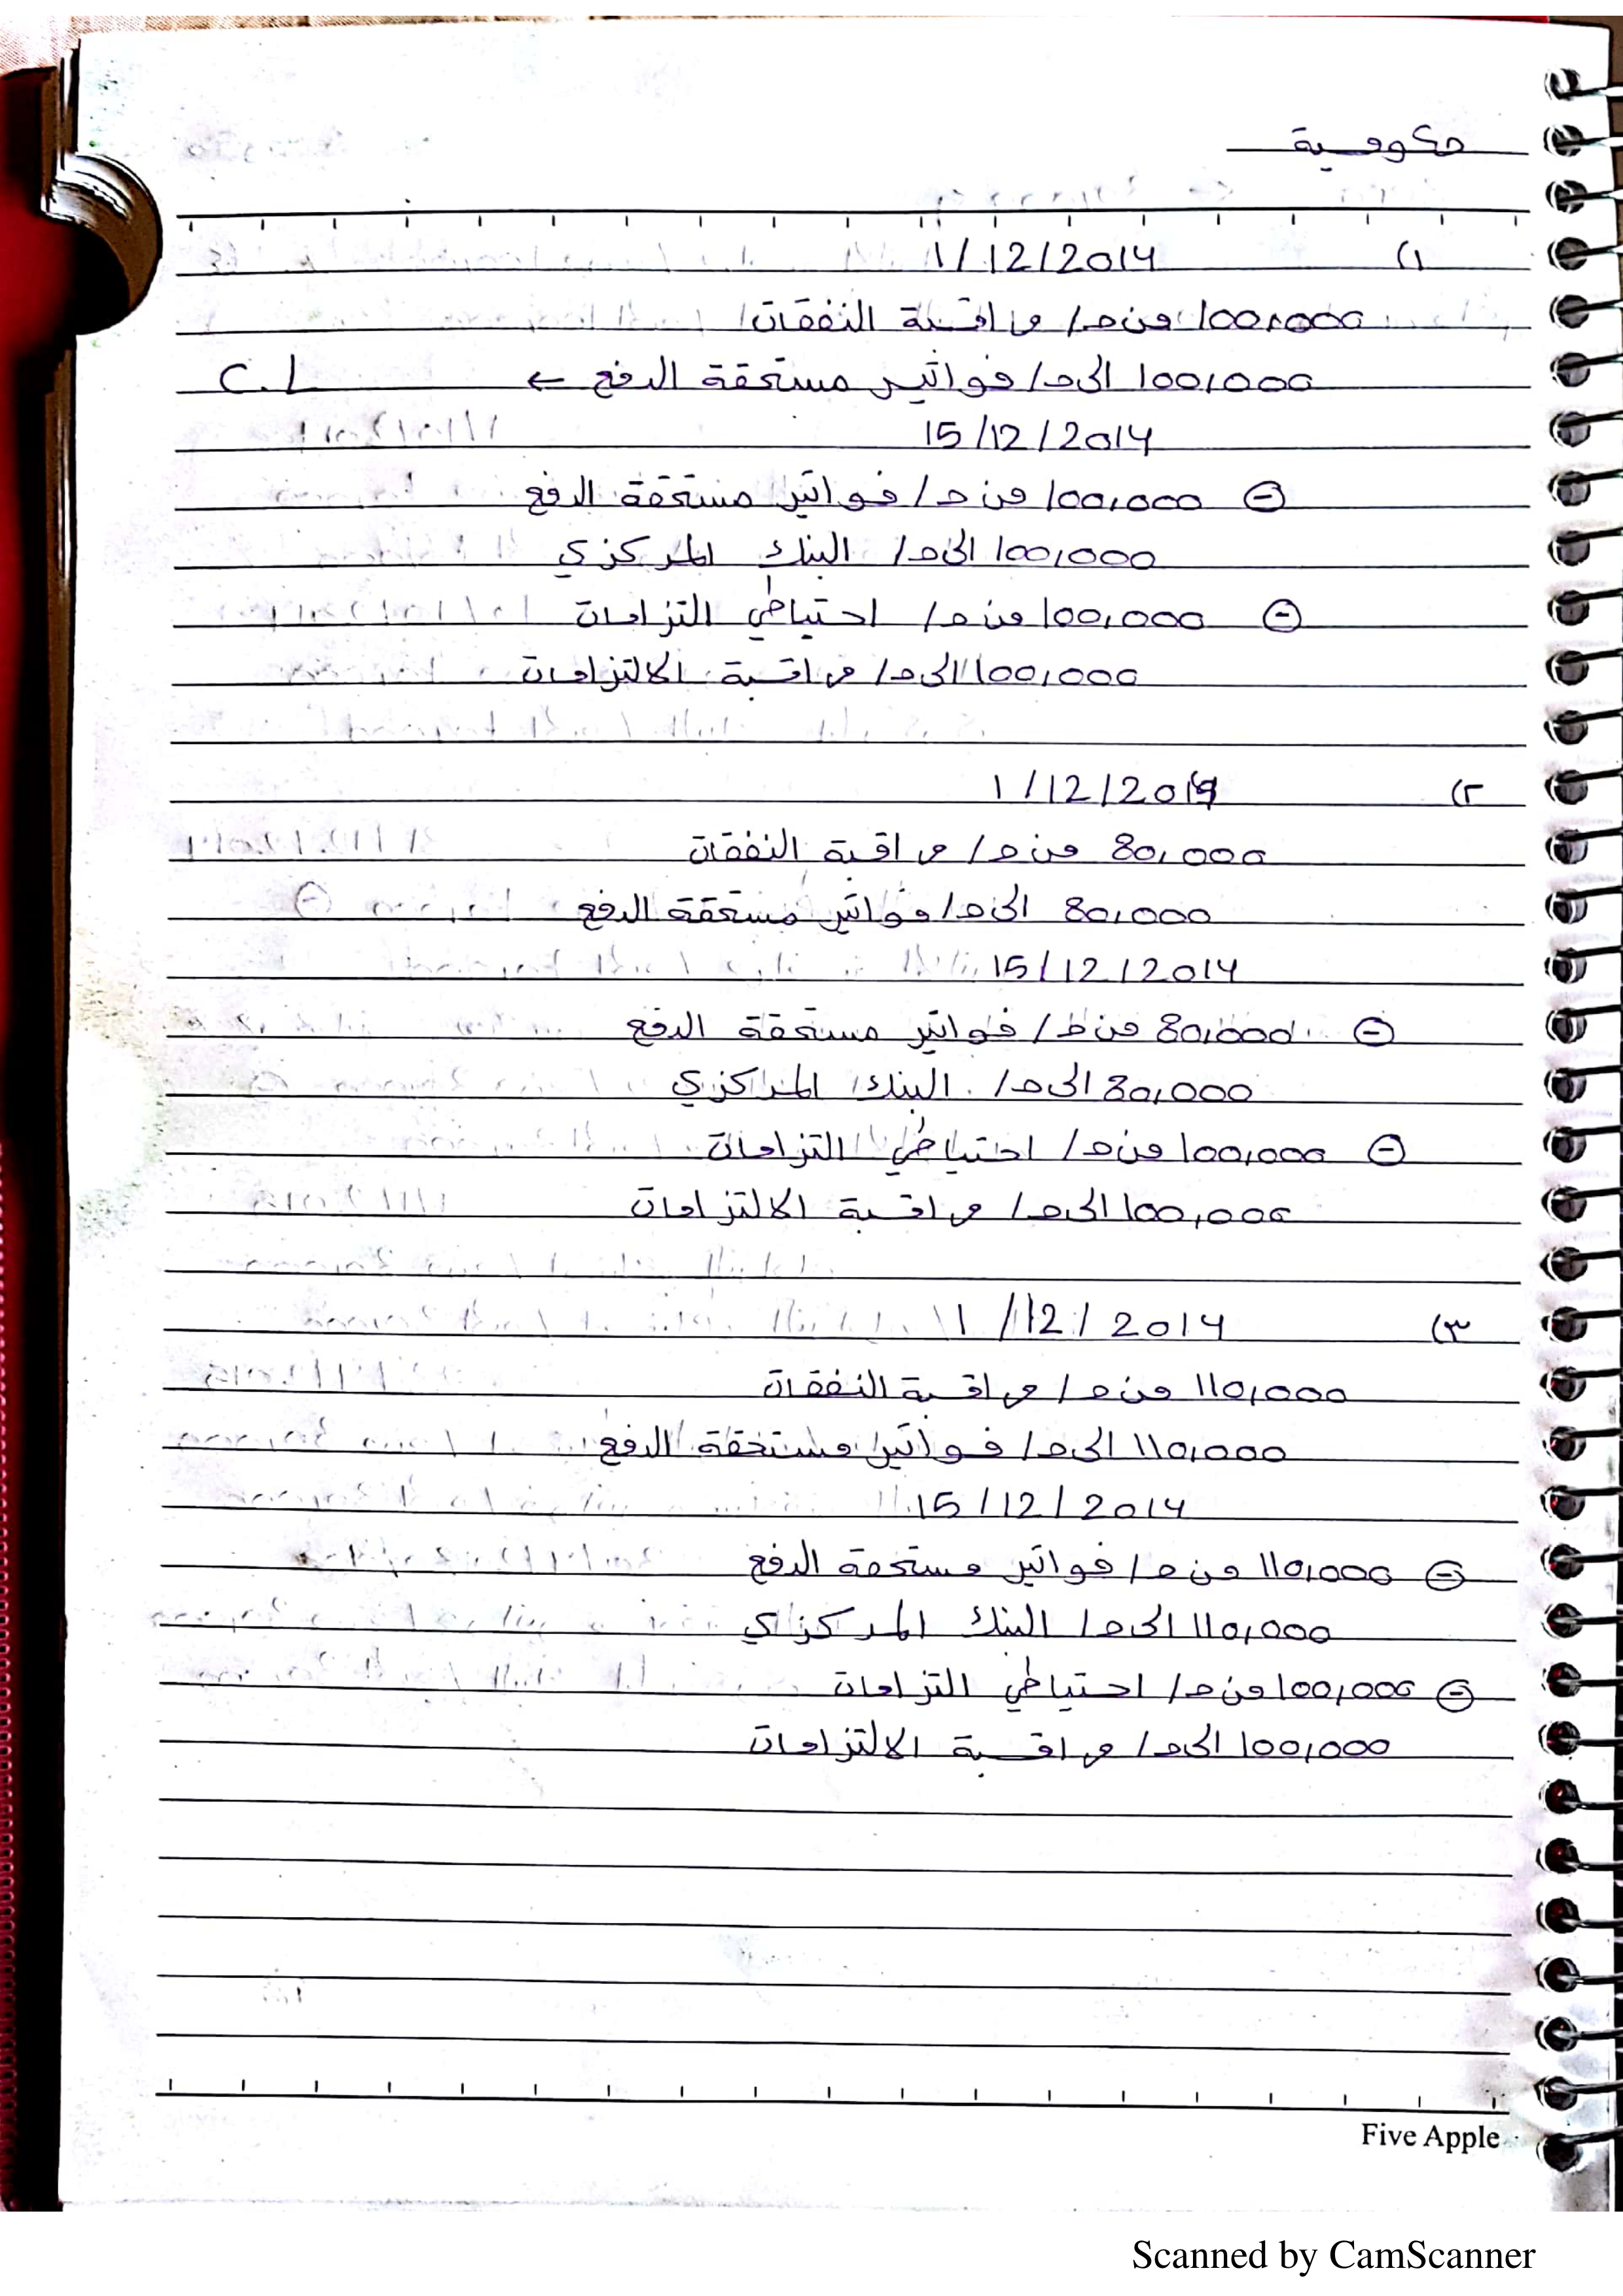 حكومية
(١ 1/12/2014
100,000 من حـ/ مراقبة النفقات
100,000 الى حـ/ فواتير مستحقة الدفع ← C.L
15/12/2014
⊖ 100,000 من حـ/ فواتير مستحقة الدفع
100,000 الى حـ/ البنك المركزي
⊖ 100,000 من حـ/ احتياطي التزامات
100,000 الى حـ/ مراقبة الالتزامات
(٢ 1/12/2014
80,000 من حـ/ مراقبة النفقات
80,000 الى حـ/ فواتير مستحقة الدفع
15/12/2014
⊖ 80,000 من حـ/ فواتير مستحقة الدفع
80,000 الى حـ/ البنك المركزي
⊖ 100,000 من حـ/ احتياطي التزامات
100,000 الى حـ/ مراقبة الالتزامات
(٣ 1/12/2014
110,000 من حـ/ مراقبة النفقات
110,000 الى حـ/ فواتير مستحقة الدفع
15/12/2014
⊖ 110,000 من حـ/ فواتير مستحقة الدفع
110,000 الى حـ/ البنك المركزي
⊖ 100,000 من حـ/ احتياطي التزامات
100,000 الى حـ/ مراقبة الالتزامات
Five Apple
Scanned by CamScanner